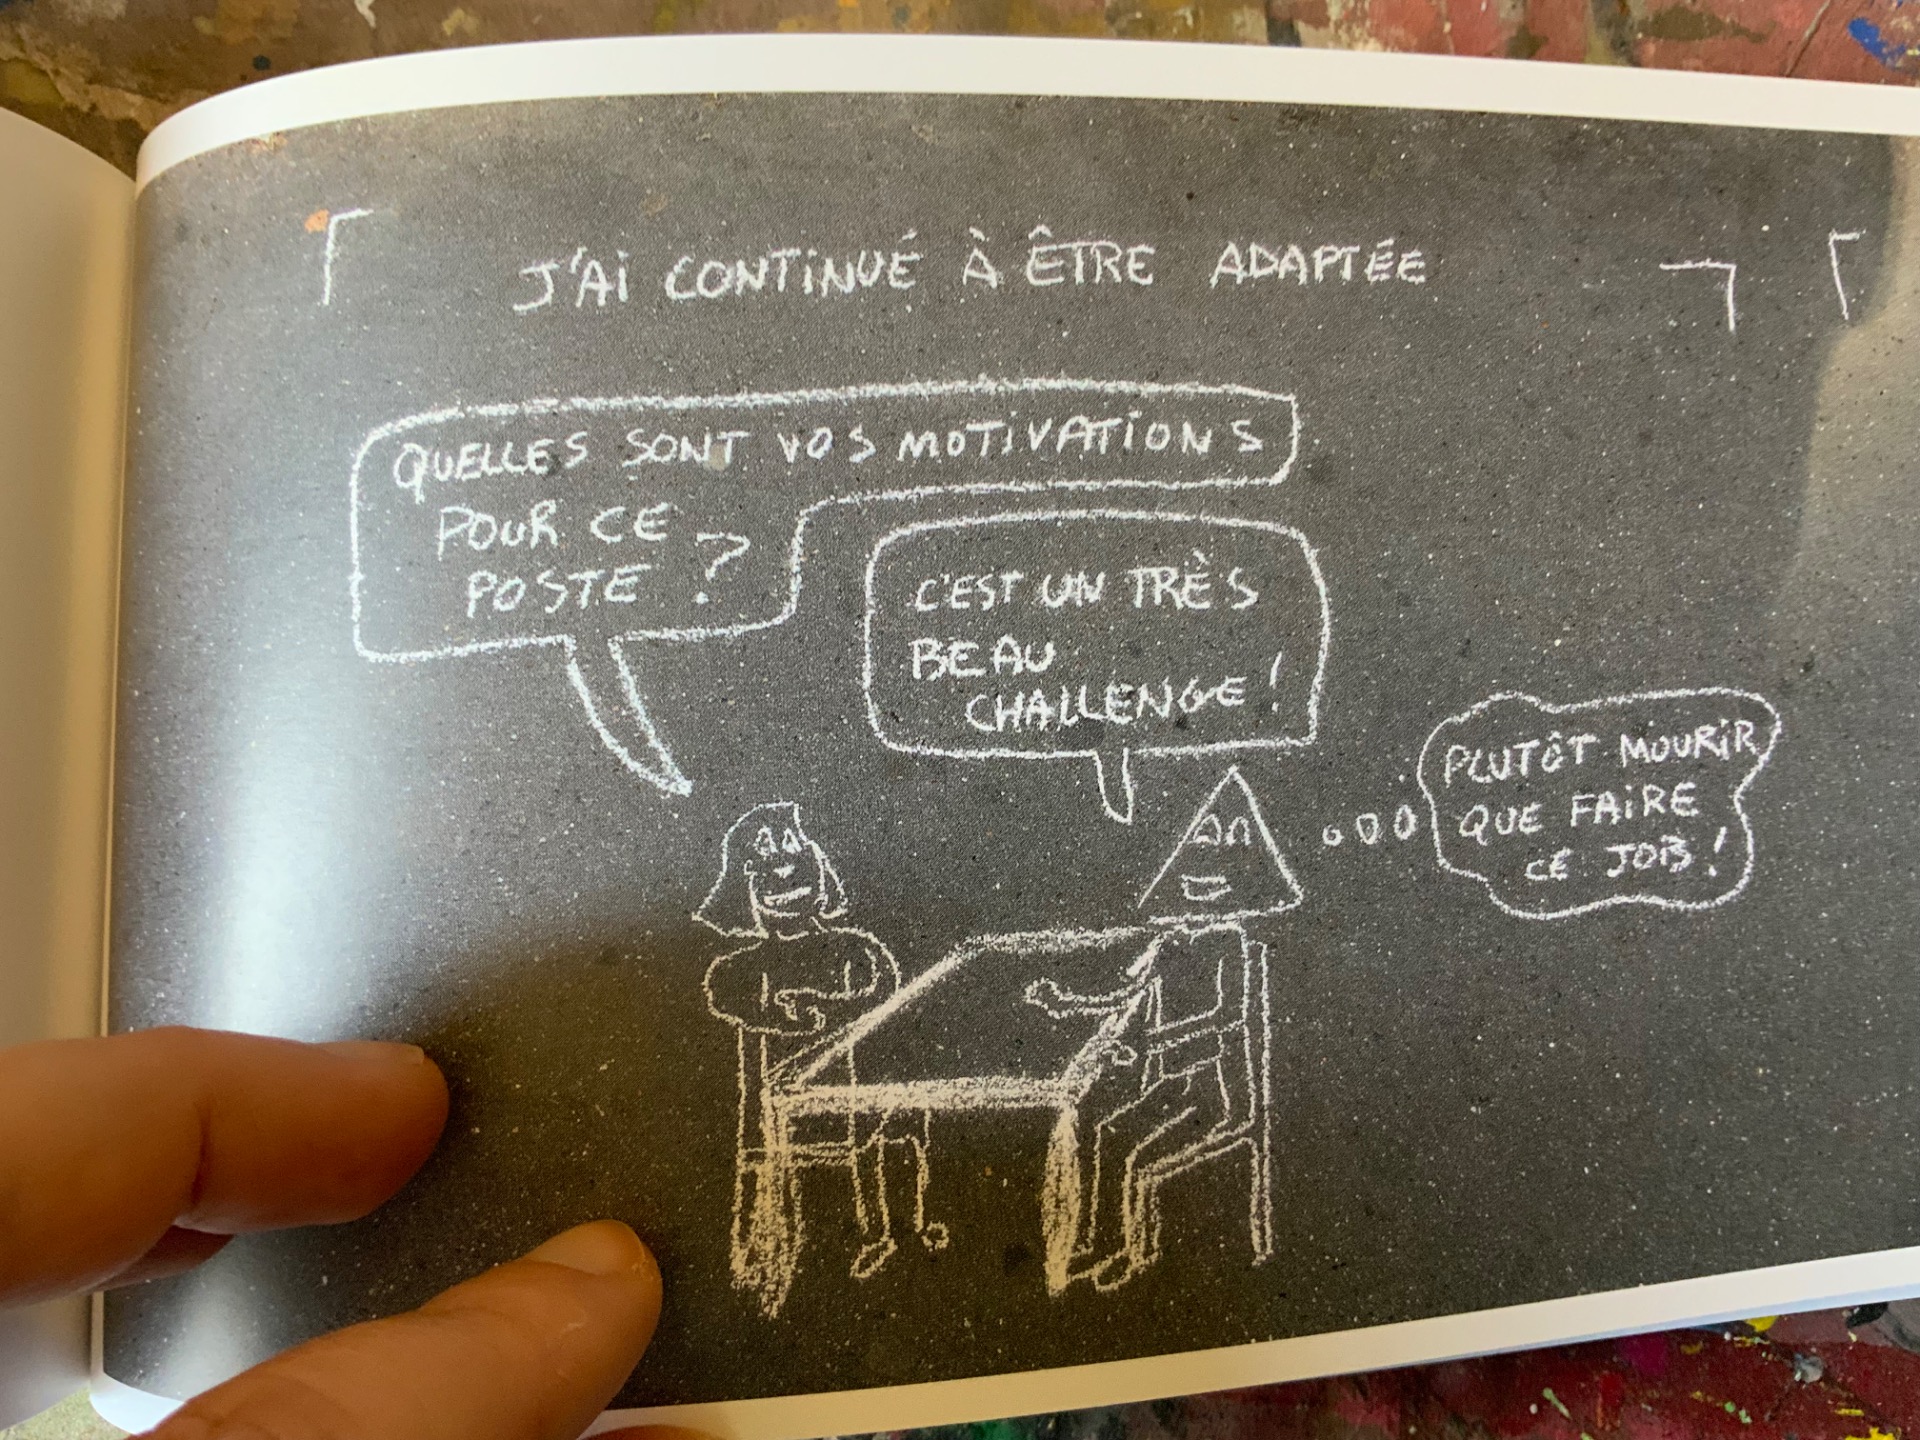 J'AI CONTINUÉ À ÊTRE ADAPTÉE
QUELLES SONT VOS MOTIVATIONS
POUR CE
POSTE ?
C'EST UN TRÈS
BEAU
CHALLENGE !
PLUTÔT MOURIR
QUE FAIRE
CE JOB !